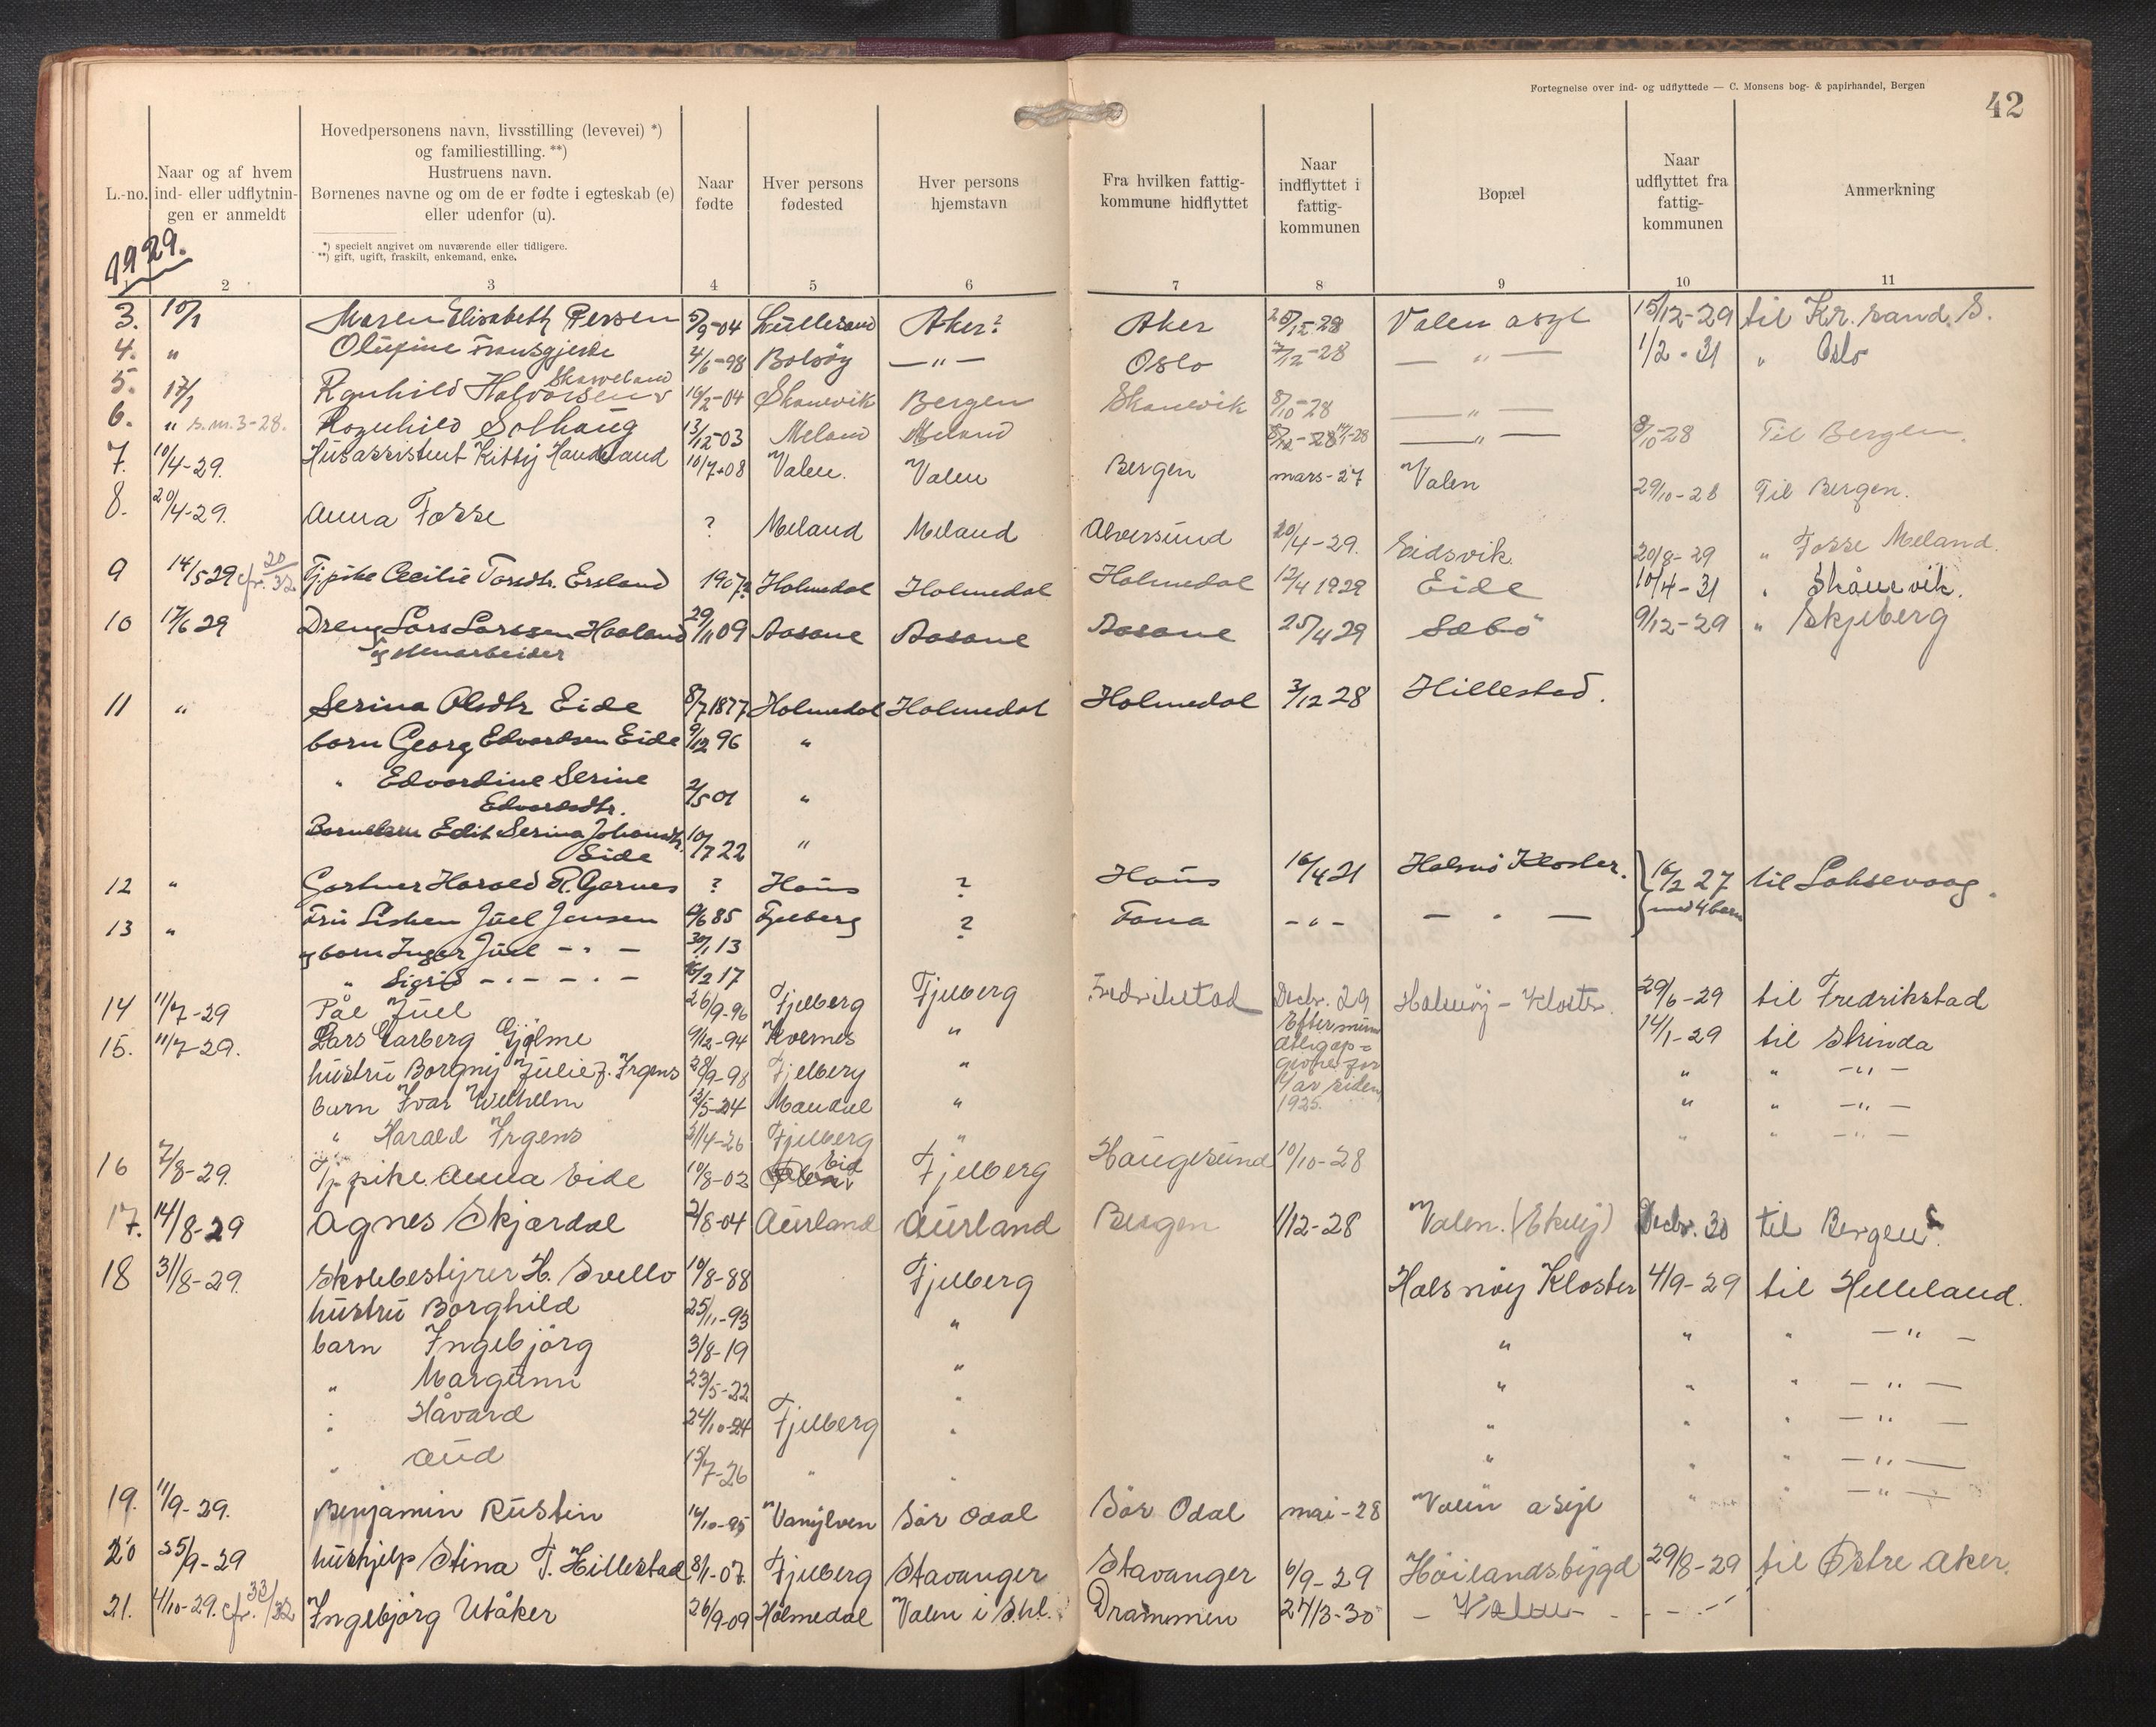 Fortegnelse over ind- og udflyttede — C. Monsens bog- & papirhandel, Bergen
42
L.-no.
Naar og af hvem ind- eller udflytnin-gen er anmeldt
Hovedpersonens navn, livsstilling (levevei) *)
og familiestilling. **)
Hustruens navn.
Børnenes navne og om de er fødte i egteskab (e)
eller udenfor (u).
*) specielt angivet om nuværende eller tidligere.
**) gift, ugift, fraskilt, enkemand, enke.
Naar fødte
Hver persons fødested
Hver persons hjemstavn
Fra hvilken fattig-kommune hidflyttet
Naar indflyttet i fattig-kommunen
Bopæl
Naar udflyttet fra fattig-kommunen
Anmerkning
1929.
2 3 4 5 6 7 8 9 10 11
3. Maren Elisabeth Persen 5/9-04 Lillesand Aker? Aker Valen asyl 15/12-29 til Kr.sand S.
4. " Olufine 4/6-98 Bolsöy —"— Oslo —"— 1/2-31 " Oslo
5. 17/1 Ragnhild Halvorsen Skaaveland 16/2-04 Skanevik Bergen Skanevik 8/10-28 —"—
6. " s.m. 3-28. Rognhild Solhaug 13/12-03 Meland Meland —"— 8/10-28 Til Bergen.
7. 10/4-29. Husassistent Kitty Handeland 10/7-08 Valen. Valen Bergen mars-27 Valen 29/10-28 Til Bergen.
8. 20/4-29. Anna Fosse ? Meland Meland Alversund 20/4-29. Eidsvik 20/8-29 " Fosse Meland.
9 14/5 29 cfr. 20/32 Tj.pike Cecilie Torsdtr. Ersland 1907? Holmedal Holmedal Holmedal 12/4 1929 Eide 10/4-31 " Skånevik.
10 17/6 29 Dreng Lars Larssen Haaland 29/11 09 Aasane Aasane Aasane 25/4 29 Sæbö 9/12-29 " Skjeberg
11 " Serina Olsdtr Eide 8/7 1877 Holmedal Holmedal Holmedal 3/12 28 Hillestad.
born Georg Edvardsen Eide 9/12 96 "
" Edvardine Serine
Edvardsdtr. 2/5 01 "
Barnebarn Edit Serina Johansdtr.
Eide 10/7 22 "
12 " Gartner Harald R. Garnes ? Haus ? Haus 16/4 21 Halsnö Kloster. 16/2 27 til Laksevaag.
med 4 barn
13 " Fru Lisken Juel Jensen 6/6 85 Fjelberg ? Fana -"- — " —
og barn Inger Juel -"- 30/1 13
" Sigrid -"- -"- 16/2 17
14 11/7-29 Pål Juel 26/9-96 Fjelberg Fjelberg Fredrikstad Decbr. 29 Halsnöy-Kloster. 29/6-29 til Fredrikstad
15. 11/7-29. Lars Garberg Gjölme 9/12-94 Kvernes " 14/1-29 til Strinda
Efter
for
år siden
1925.
hustru Borgny Julie f. Irgens 28/9-98 Fjelberg " " " —"—
barn Ivar Wilhelm 12/5-24 Mandal " " " —"—
" Harald Irgens 3/4-26 Fjelberg " " " —"—
16 7/8-29. Tj.pike Anna Eide 10/8-02 Eid Fjelberg Haugesund 10/10-28
17. 14/8-29 Agnes Skjærdal 2/8-04 Aurland Aurland Bergen 1/12-28 Valen. Decbr. 30 til Bergen.
18 31/8-29. Skolebestyrer H. Svello 10/8-88 Fjelberg Halsnöy Kloster 4/9-29 til Helleland.
hustru Borghild 25/11-93 " " " —"—
barn Ingebjörg 3/8-19 " " " " —"—
" Margunn 23/5-22 " " " " —"—
" Håvard 24/10-24 Fjelberg " " " " —"—
" Aud 15/7-26 " " " " " —"—
19. 11/9-29. Benjamin Rustin 14/10-95 Vanylven Sör Odal Sör Odal mai-28 Valen asyl
20 25/9-29 hushjelp Stina T. Hillestad 8/1-07. Fjelberg Stavanger Stavanger 6/9-29 Höilandsbygd 29/8-29 til Østre Aker.
21. 4/10-29. cfr. 33/32 Ingebjörg Utåker 26/9-09 Holmedal Valen i Shl. Drammen 24/3-30 - Valen -